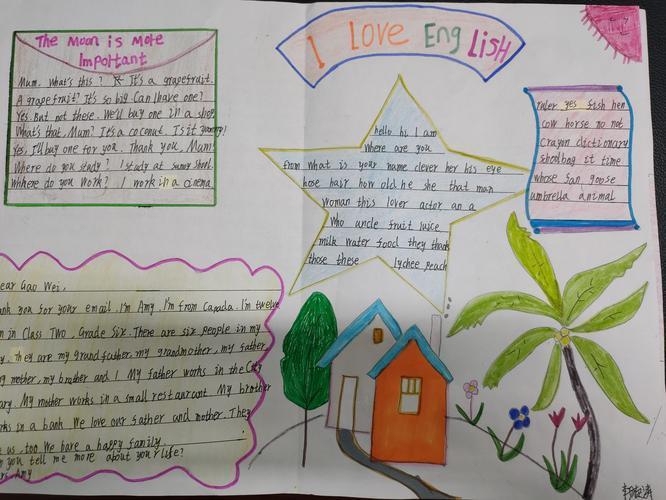 I Love English
The Moon is More
Important
Mum. What's this? It's a grapefruit.
A grapefruit? It's so big Can I have one?
Yes. But not these. We'll buy one in a shop.
What's that, Mum? It's a coconut. Is it yummy!
Yes, I'll buy one for you. Thank you, Mum!
Where do you study? I study at sunny shool.
Whhere do you work? I work in a cinema
hello hi I am
where are you
from what is your name clever her his eye
hose hair how old he she that man
woman this lover actor an a
who uncle fruit juice
milk water food they thank
those these lychee peach
ruler yes fish hen
cow horse no not
crayon dictionary
shoolbag it time
whose fan goose
umbrella animal
ear Gao Wei,
nk you for your email. I'm Amy. I'm from Canada. I'm twelve
m in Class Two, Grade Six. There are six people in my
y. They are my grandfather, my grandmother, my father
mother, my brother and I My father works in the City
ary My mother works in a small restaurant My brother
rks in a bank We love our father and mother. They
us, too We have a happy family
n you tell me more about your life?
Amy